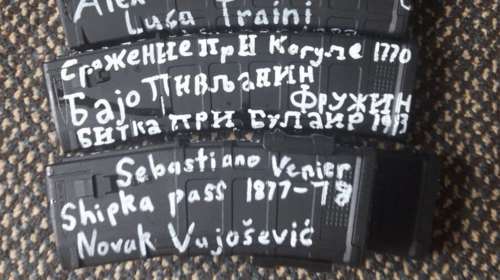 Alex
Luca Traini
Сражение при Кагуле 1770
Бајо Пивљанин
Фружин
Битка при Булаир 1913
Sebastiano Venier
Shipka pass 1877-78
Novak Vujošević